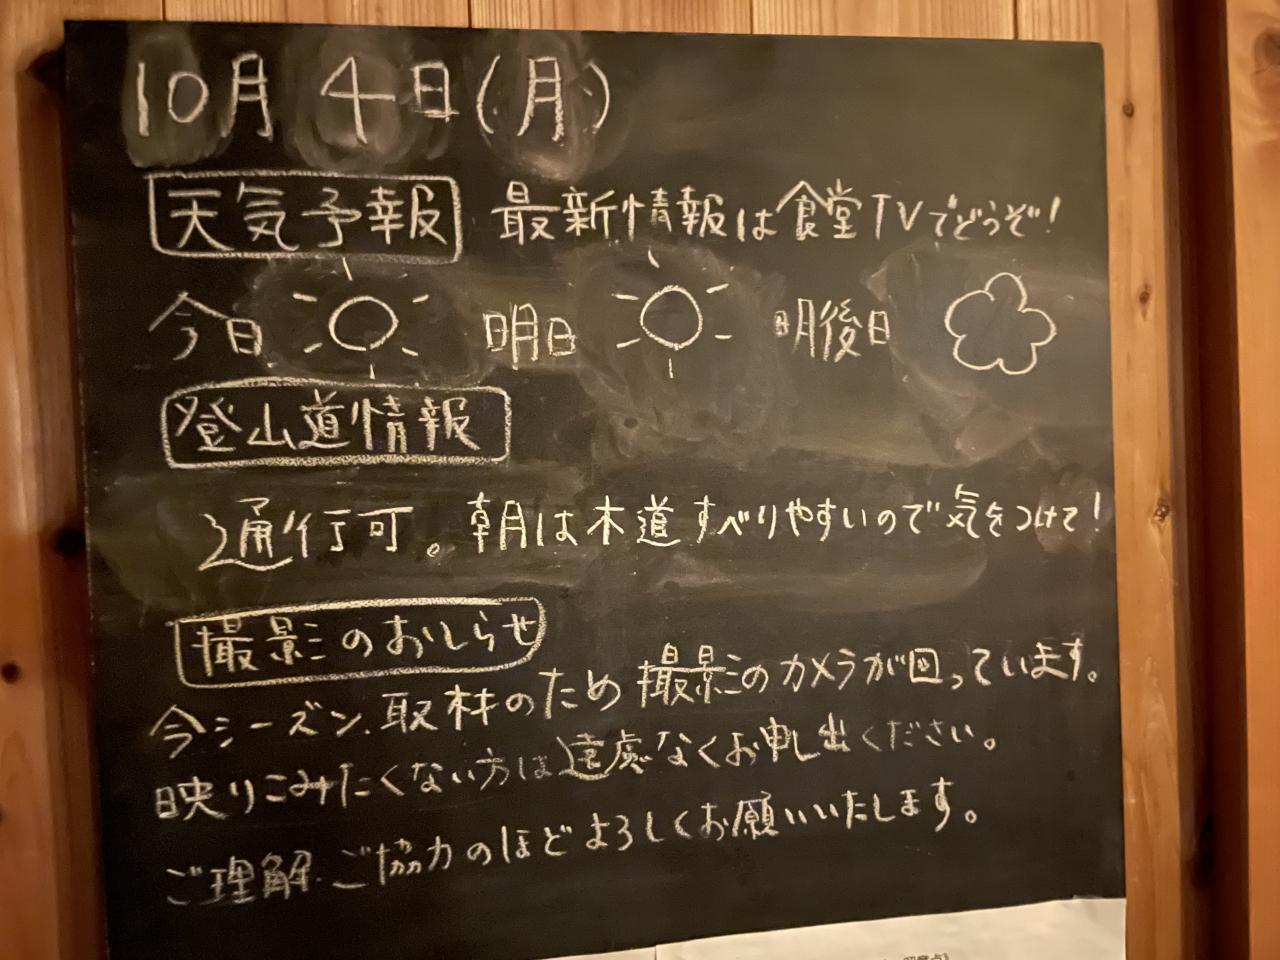 10月4日(月)
天気予報 最新情報は食堂TVでどうぞ!
今日 明日 明後日
登山道情報
通行可。朝は木道すべりやすいので気をつけて!
撮影のおしらせ
今シーズン、取材のため撮影のカメラが回っています。
映りこみたくない方は遠慮なくお申し出ください。
ご理解、ご協力のほどよろしくお願いいたします。